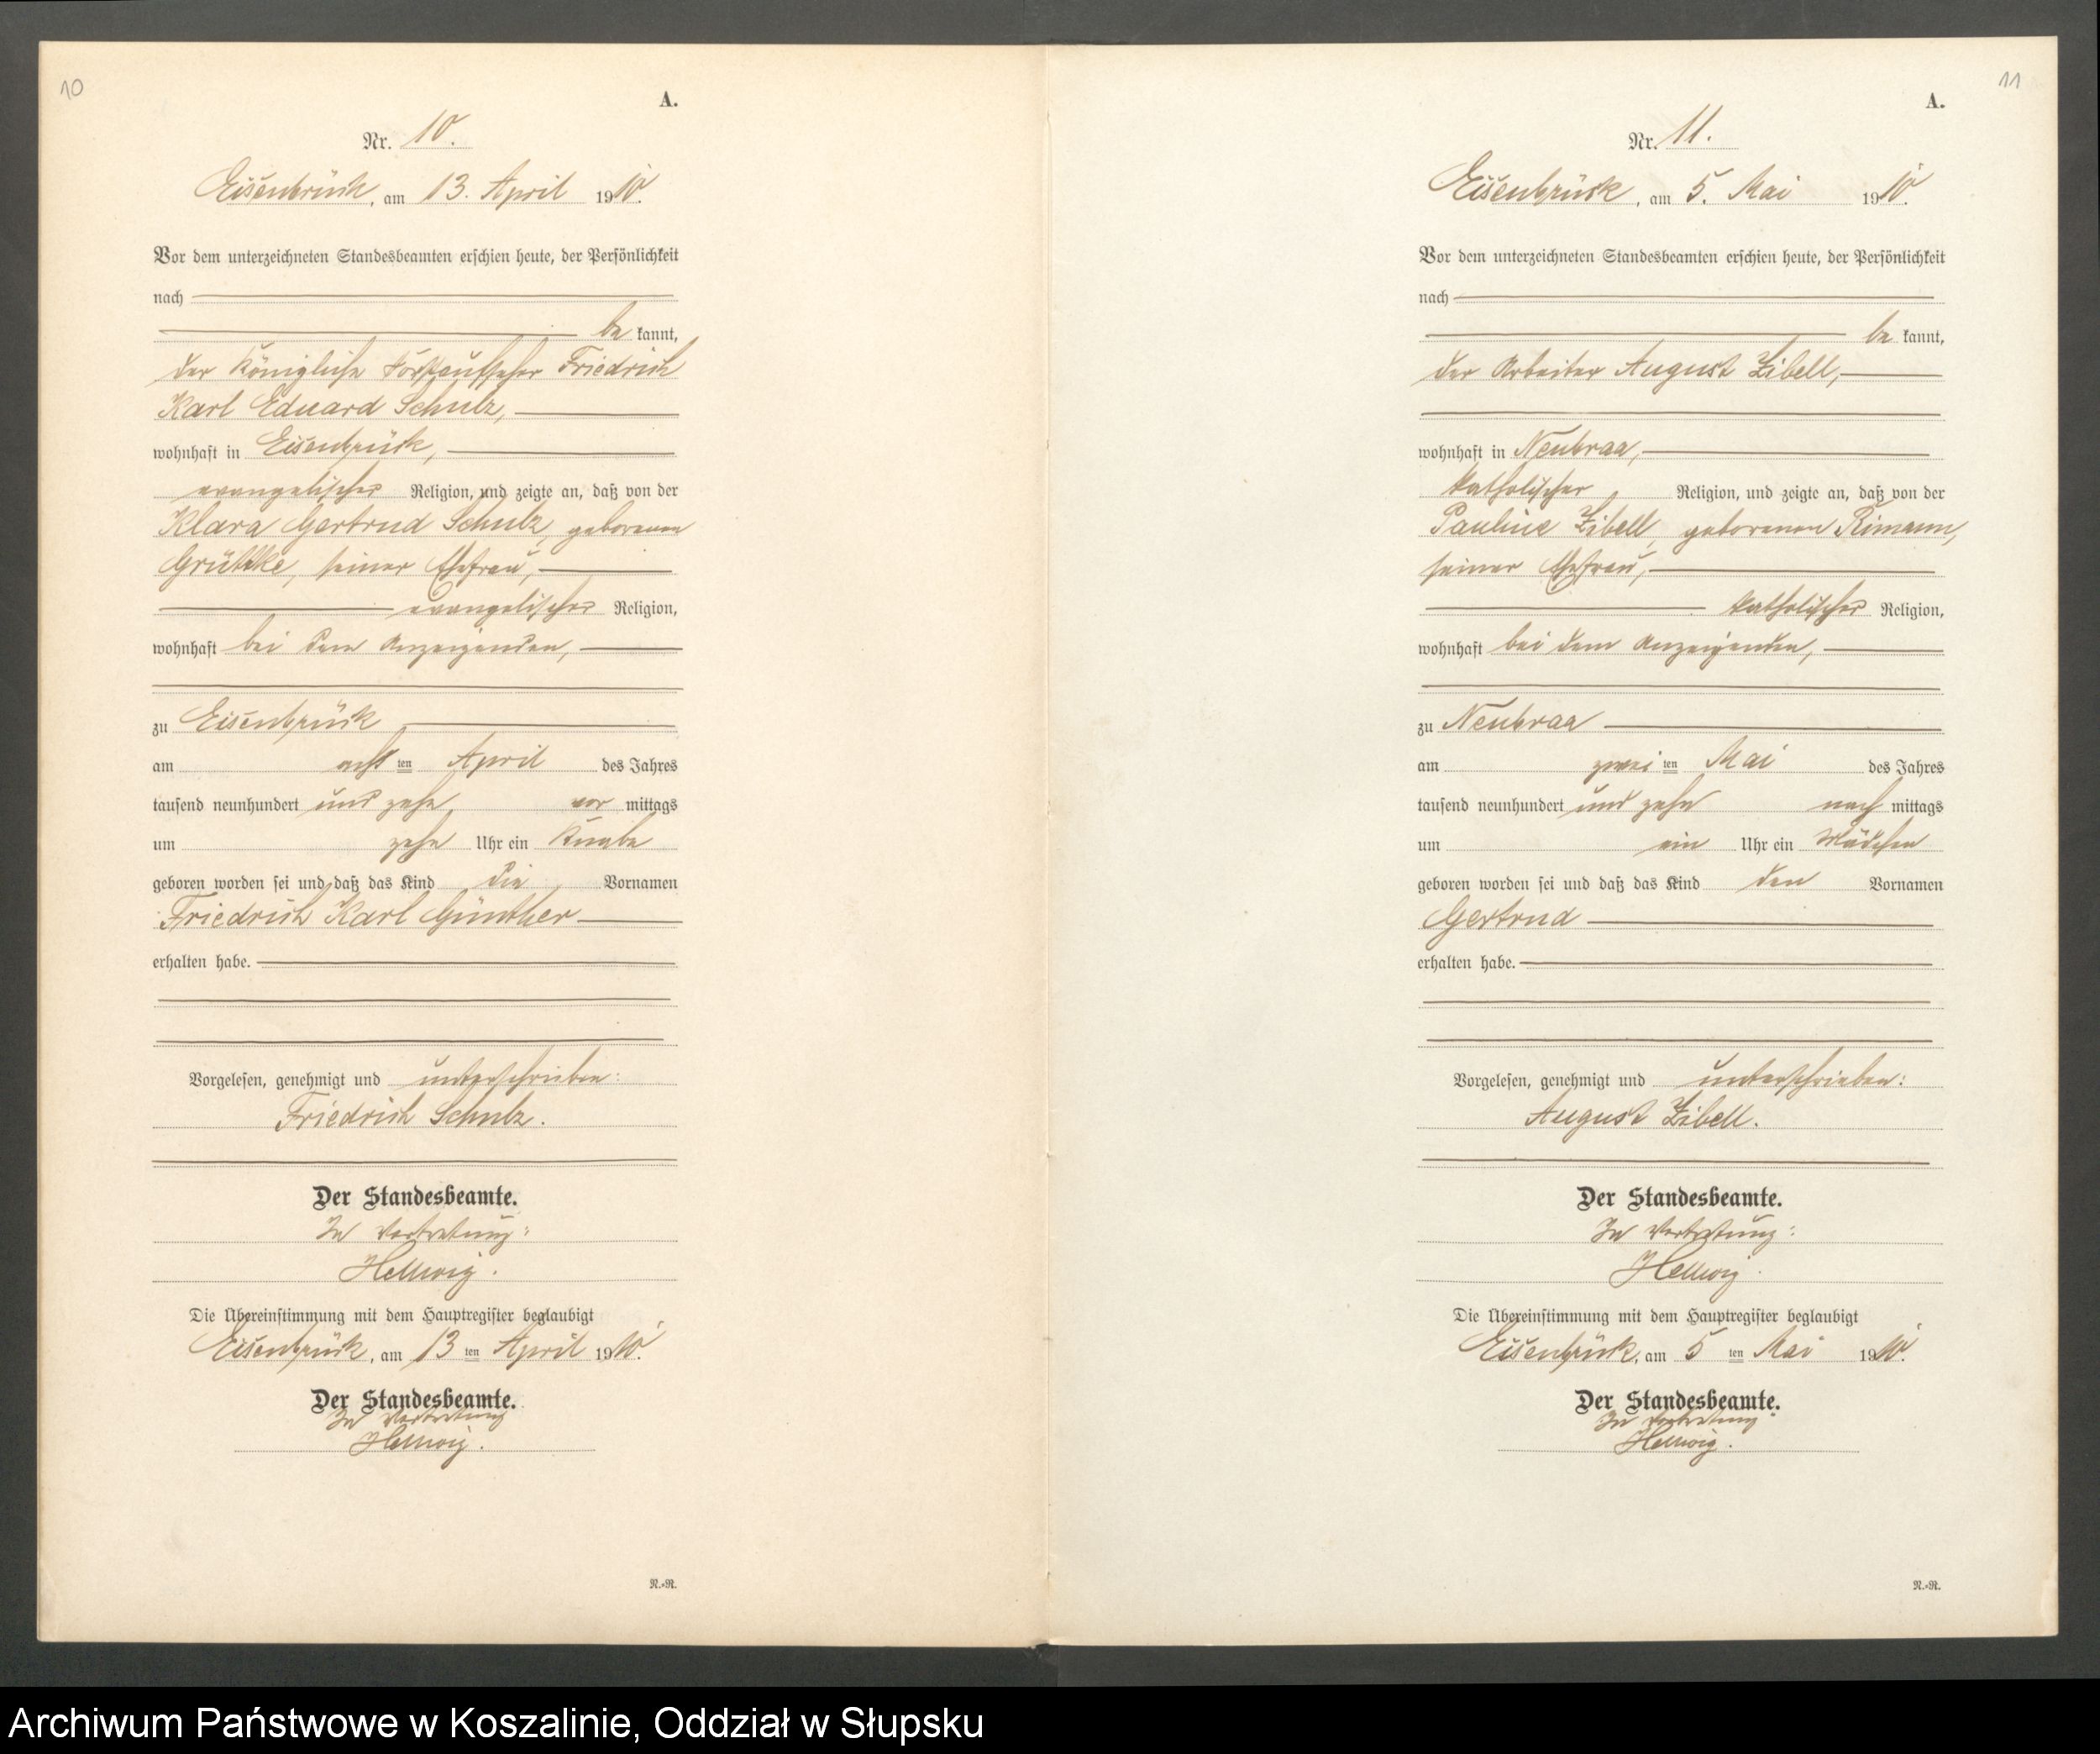 10
A.
Nr. 10.
Eisenbrück, am 13. April 1910.
Vor dem unterzeichneten Standesbeamten erschien heute, der Persönlichkeit
nach
be kannt,
der Königliche Forstaufseher Friedrich
Karl Eduard Schulz,
wohnhaft in Eisenbrück,
evangelischer Religion, und zeigte an, daß von der
Klara Gertrud Schulz, geborenen
Grüttke, seiner Ehefrau,
evangelischer Religion,
wohnhaft bei dem Anzeigenden,
zu Eisenbrück
am acht ten April des Jahres
tausend neunhundert und zehn vor mittags
um zehn Uhr ein Knabe
geboren worden sei und daß das Kind die Vornamen
Friedrich Karl Günther
erhalten habe.
Vorgelesen, genehmigt und unterschrieben:
Friedrich Schulz.
Der Standesbeamte.
In Vertretung:
Hellwig.
Die Übereinstimmung mit dem Hauptregister beglaubigt
Eisenbrück, am 13 ten April 1910.
Der Standesbeamte.
In Vertretung
Hellwig.
N.-R.
11
A.
Nr. 11.
Eisenbrück, am 5. Mai 1910.
Vor dem unterzeichneten Standesbeamten erschien heute, der Persönlichkeit
nach
be kannt,
der Arbeiter August Zibell,
wohnhaft in Neubraa,
katholischer Religion, und zeigte an, daß von der
Pauline Zibell, geborenen Rimann,
seiner Ehefrau,
katholischer Religion,
wohnhaft bei dem Anzeigenden,
zu Neubraa
am zwei ten Mai des Jahres
tausend neunhundert und zehn nach mittags
um ein Uhr ein Mädchen
geboren worden sei und daß das Kind den Vornamen
Gertrud
erhalten habe.
Vorgelesen, genehmigt und unterschrieben:
August Zibell.
Der Standesbeamte.
In Vertretung:
Hellwig.
Die Übereinstimmung mit dem Hauptregister beglaubigt
Eisenbrück, am 5 ten Mai 1910.
Der Standesbeamte.
In Vertretung
Hellwig.
N.-R.
Archiwum Państwowe w Koszalinie, Oddział w Słupsku